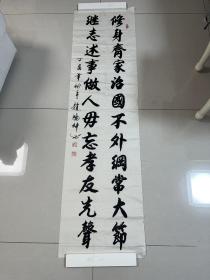 修身齊家治國不外綱常大節
继志述事做人毋忘孝友先聲